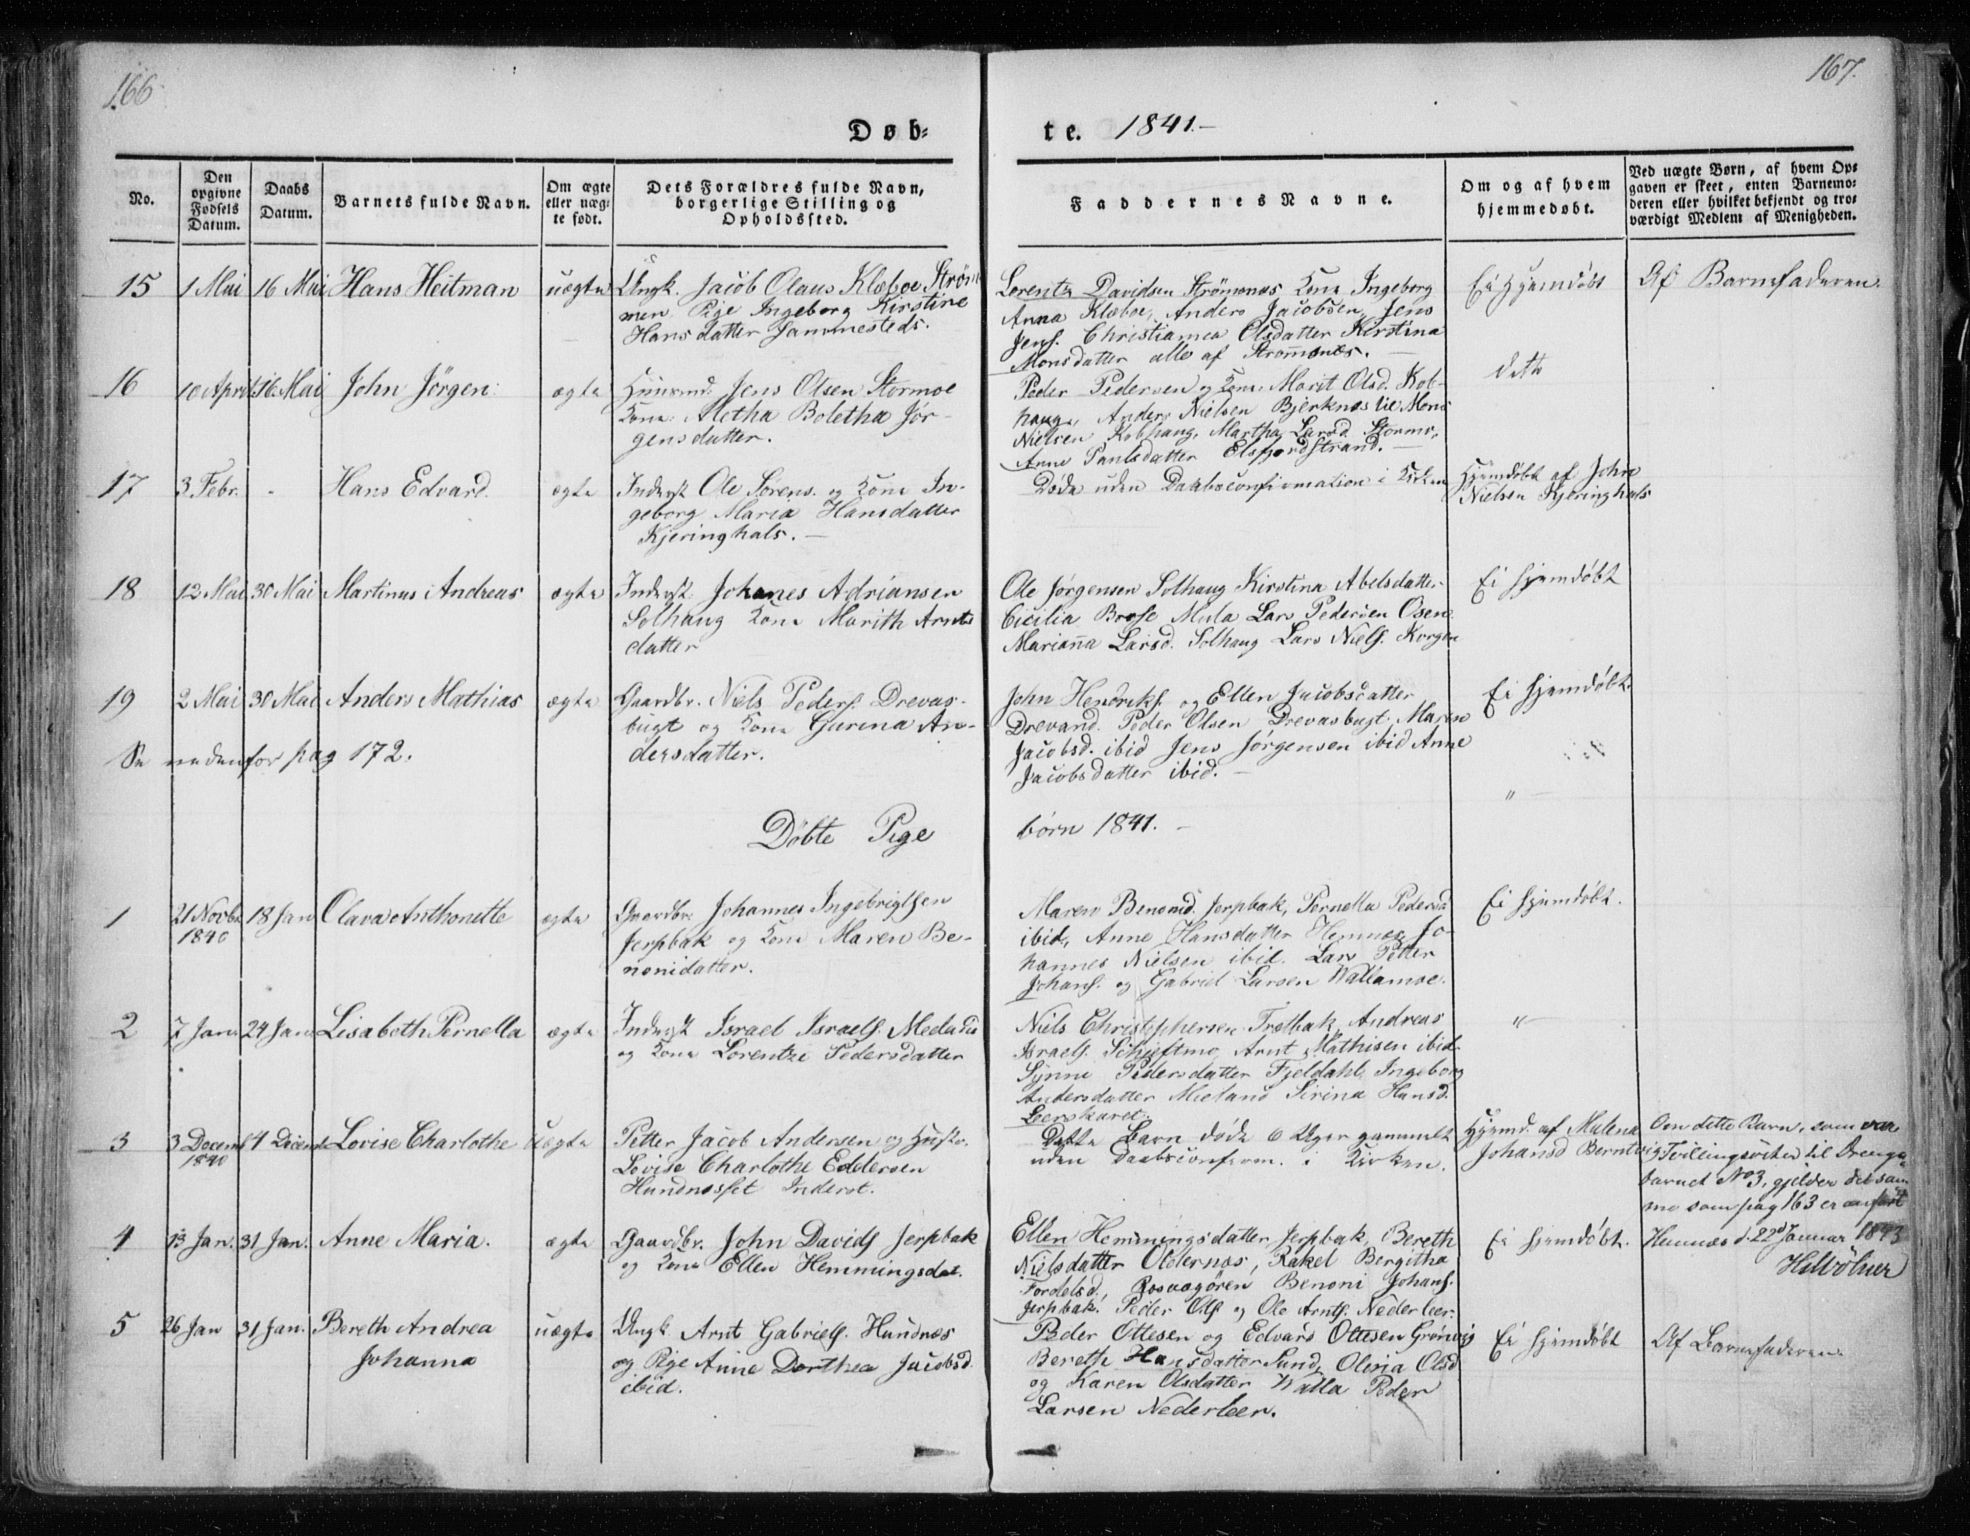 166
167.
Døb=
te. 1841.-
No.
Den opgivne Fødsels Datum.
Daabs Datum.
Barnets fulde Navn.
Om ægte eller uæg-
te født.
Dets Forældres fulde Navn,
borgerlige Stilling og
Opholdssted.
Faddernes Navne.
Om og af hvem
hjemmedøbt.
Ved uægte Børn, af hvem Op-
gaven er skeet, enten Barnemo-
deren eller hvilket bekjendt og tro-
værdigt Medlem af Menigheden.
15 1 Mai 16 Mai Hans Heitman uægte Ungk. Jacob Olaus Klæboe Strøm
men Pige Ingeborg Kirstine
Hansdatter Jammesteds.
Lorentz Davidsen Strømenæs Kone Ingeborg
Anna Klæboe, Anders Jacobsen, Jens
Jens. Christianea Olsdatter Kirstina
Monsdatter alle af Strommenæs.
Ei Hjemdøbt
Af Barnfaderen.
16 10 April 16 Mai John Jörgen ægte Huusmd. Jens Olsen Stormoe
Kone Aletha Boletha Jör-
gensdatter.
Peder Pedersen og Kone Marit Olsd. Kob-
haug, Anders Nielsen Bjerknæslie Mons
Nielsen Kobhaug, Martha Larsd Stormo,
Anne Paulsdatter Elsfjordstrand.
dett
17 3 Febr. - Hans Edvard ægte Inderst Ole Sørens. og Kone In-
geborg Maria Hansdatter
Kjeringhals.
Døde uden Daabsconfirmation i Kirken
Hjemdøbt af John
Nielsen Kjeringhals
18 12 Mai 30 Mai Martinus Andreas ægte Inderst Johanes Adriansen
Solhaug Kone Marith Arnts
datter
Ole Jørgensen Solhaug Kirstina Abelsdatter
Cicilia Brose Mula Lars Pedersen Osen
Marianna Larsd. Solhaug Lars Niels. Korgen
Ei hjemdøbt
19 2 Mai 30 Mai Anders Mathias ægte Gaardbr. Niels Peders. Drevas-
bugt og Kone Gurina An-
dersdatter.
John Hendriks. og Ellen Jacobsdatter
Drevand. Peder Olsen Drevasbugt. Maren
Jacobsd. ibid Jens Jørgensen ibid Anne
Jacobsdatter ibid.
Ei hjemdøbt.
Se nedenfor pag 172.
"
Döbte Pige
börn 1841.
1 21 Novbr
1840 18 Jan Olava Anthonette ægte Gaardbr. Johannes Ingebrigtsen
Jerpbak og Kone Maren Be-
nonidatter.
Maren Benonid. Jerpbak, Pernella Pedersd
ibid, Anne Hansdatter Hemnes Jo-
hannes Nielsen ibid. Lars Petter
Johans. og Gabriel Larsen Wallamoe.
Ei hjemdøbt.
2 7 Jan 24 Jan Lisabeth Pernella ægte Inderst Israel Israels. Medadie
og Kone Lorentze Pedersdatter
Niels Christophersen Trætbak Andreas
Israels. Schjeftmo, Arnt Mathisen ibid.
Synne Pedersdatter Fjeldahl, Ingeborg
Andersdatter Mieland Sirina Hansd.
Leerskaret.
"
3 3 Decemb
1840 4 Decemb Lovise Charlothe Uægte Petter Jacob Andersen og Hustr.
Lovise Charlothe Eddersen
Hundnesset Inderst.
Dette Barn døde 6 Uger gammelt
uden Daabsconfirm. i Kirken.
Hjemd. af Malena
Johansd Berntvig
Om dette Barn, som var
Tvillingsöster til Drenge-
barnet No 3, gjelder det sam-
me som pag 163 er anført
Hemnæs d. 22d Januar 1843
4 13 Jan. 31 Jan. Anne Maria. ægte Gaardbr. John Davids Jerpbak
og Kone Ellen Hemmingsdat.
Ellen Hemmingsdatter Jerpbak, Bereth
Nielsdatter Oldernæs, Rakel Bergitha
Fordelsd, Rosvagören Benoni Johans.
Jerpbak. Peder Ols og Ole Arnts. Nederleer.
Ei hjemdøbt.
5 26 Jan 31 Jan. Bereth Andrea
Johanna uægte Ungk Arnt Gabriels. Hundnæs
og Pige Anne Dorthea Jacobsd.
ibid.
Peder Ottesen og Edvard Ottesen Grønvig
Bereth Hansdatter Sund, Oleria Olsd
og Karen Olsdatter Walla Peder
Larsen Nederleer.
Ei hjemdøbt
Af Barnefaderen